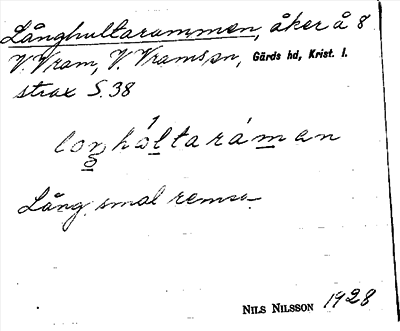 Långhultarammen, åker å 8
V. Vram, V. Vrams sn, Gärds hd, Krist. l.
strax S. 38
Lång, smal remsa.
NILS NILSSON 1928